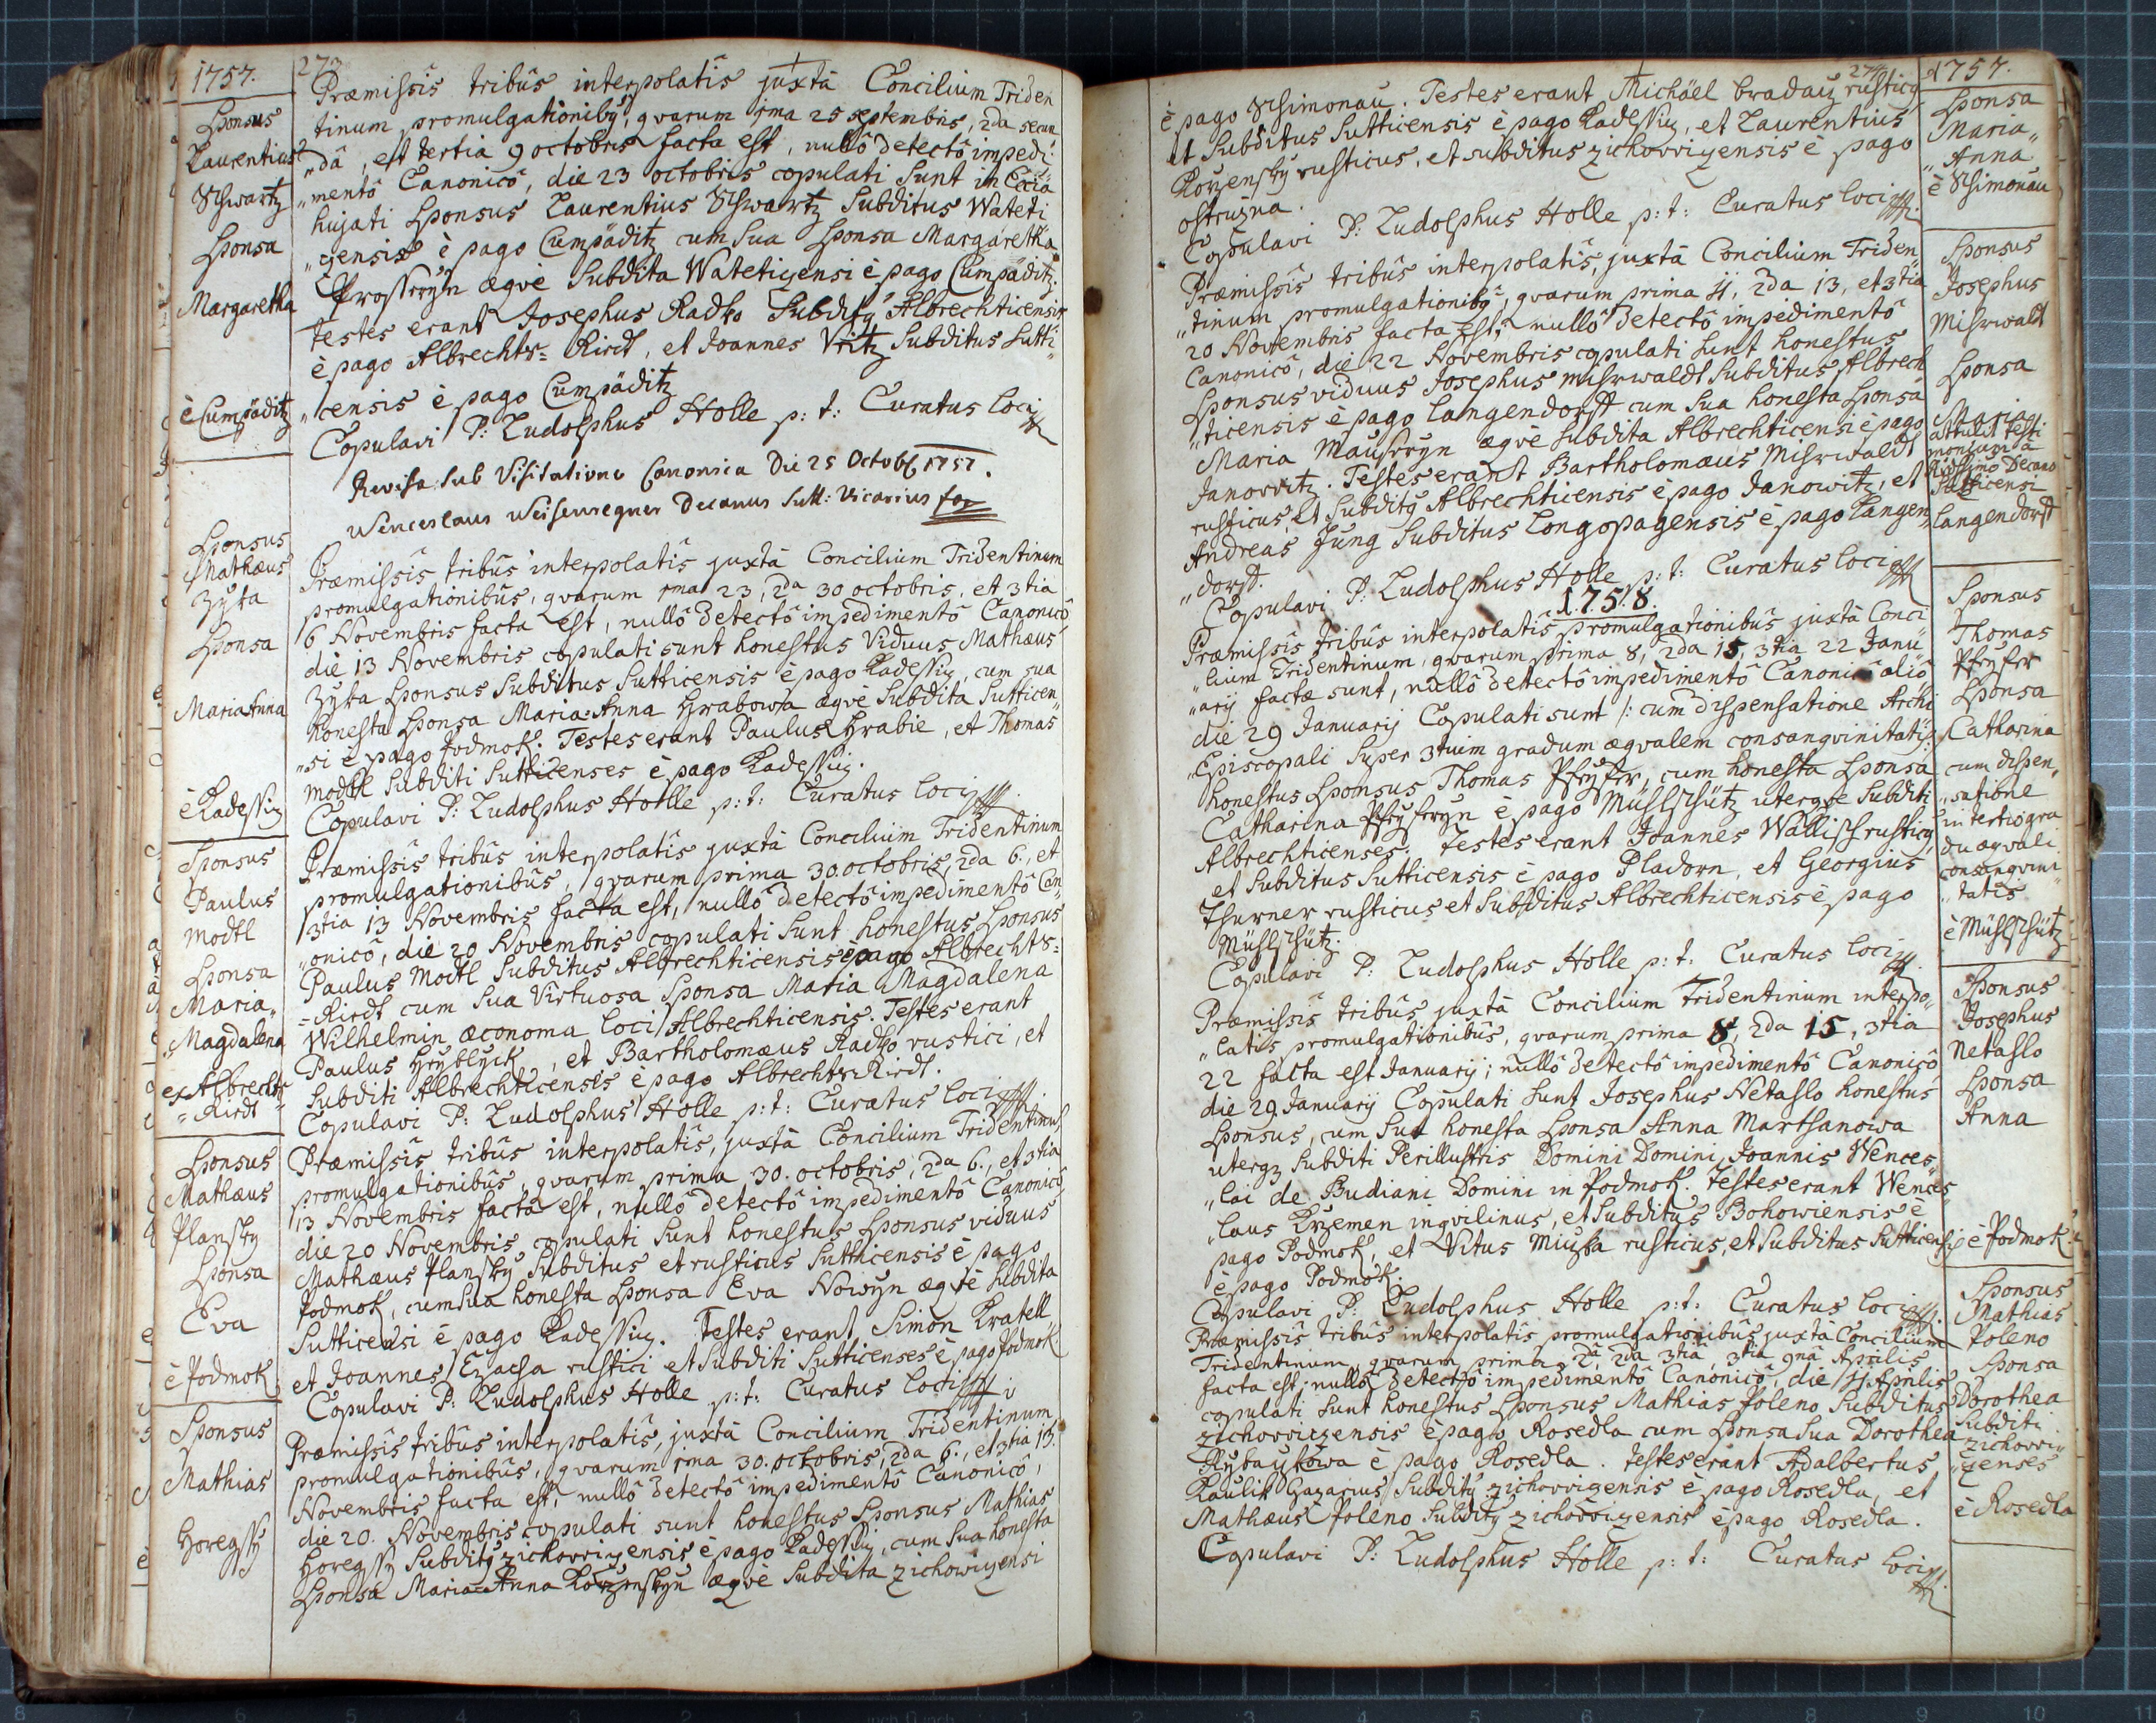 1757.
273
Sponsus
Laurentius
Schwartz
Sponsa
Margaretha
è Cumpäditz
Præmissis tribûs interpolatîs juxtà Concilium Triden
tinum promulgationibꝰ, qvarum 1ma 25 septembris, 2da secun
„dâ, est tertia 9 octobris facta est, nullô detectô impedi„
„mentô Canonicô, die 23 octobris copulati sunt in Eccia
hujati Sponsus Laurentius Schwartz Subditus Wateti
„censis è pago Cumpäditz cum sua Sponsa Margaretha
æqvè Subdita Watetizensi è pago Cumpäditz.
Testes erant Josephus Radko Subditꝰ Albrechticensis
è pago Albrechts= Riedt, et Joannes Vritz Subditus Sutti„
„censis è pago Cumpäditz
Copulavi P: Ludolphus Holle p: t: Curatus loci
Revisa sub Visitatione Canonica Die 25 Octob 1757.
Wenceslaus Weisenregner Decanus Sutt: Vicarius for
Sponsus
Mathæus
Zÿka
Sponsa
Maria Anna
è Kadessiz
Præmissis tribûs interpolatîs juxtà Concilium Tridentinum
promulgationibûs, qvarum 1ma 23, 2da 30 octobris, et 3tia
6 Novembris facta est, nullô detectô impedimentô Canonicô
die 13 Novembris copulati sunt honestus Viduus Mathæus
Zÿka Sponsus Subditus Sutticensis è pago Kadessiz, cum sua
honesta Sponsa Maria=Anna Hrabowa æqvè Subdita Sutticen„
„si è pago Podmok. Testes erant Paulus Hrabie, et Thomas
Modtl Subditi Sutticenses è pago Kadessiz.
Copulavi P: Ludolphus Holle p: t: Curatus loci
Sponsus
Paulus
Modtl
Sponsa
Maria„
„Magdalena
ex Albrechts
=Riedt
Præmissis tribûs interpolatîs juxtà Concilium Tridentinum
promulgationibûs, qvarum prima 30. octobris, 2da 6., et
3tia 13 Novembris facta est, nullô detectô impedimentô Can„
„onicô, die 20 Novembris copulati sunt honestus Sponsus
Paulus Modtl Subditus Albrechticensis è pago Albrechts=
=Riedt cum sua Virtuosa Sponsa Maria Magdalena
Wilhelmin œconoma loci Albrechticensis. Testes erant
Paulus Hrÿblÿck, et Bartholomæus Radko rustici, et
Subditi Albrechticenses è pago Albrechts=Riedt.
Copulavi P: Ludolphus Holle p: t: Curatus loci
Sponsus
Mathæus
Plansky
Sponsa
Eva
è Podmok
Præmissis tribûs interpolatîs, juxtà Concilium Tridentinum
promulgationibûs, qvarum prima 30. octobris, 2da 6., et 3tia
13 Novembris facta est, nullô detectô impedimentô Canonicô
die 20 Novembris copulati sunt honestus Sponsus viduus
Mathæus Plansky Subditus et rusticus Sutticensis è pago
Podmok, cum sua honesta Sponsa Eva Nowÿn æqvè Subdita
Sutticensi è pago Kadessiz. Testes erant Simon Kratell
et Joannes Ezacha rustici et Subditi Sutticenses è pago Podmok
Copulavi P: Ludolphus Holle p: t: Curatus loci
Sponsus
Mathias
Horegssy
Præmissis tribûs interpolatîs, juxtà Concilium Tridentinum
promulgationibûs, qvarum 1ma 30. octobris, 2da 6., et 3tia 13.
Novembris facta est, nullô detectô impedimentô Canonicô,
die 20. Novembris copulati sunt honestus Sponsus Mathias
Horegssy Subditꝰ zichovvizensis è pago Kadessiz, cum sua honesta
Sponsa Maria=Anna Kozenskyn æqvè Subdita zichowizensi
274
1757.
è pago Schimonau. Testes erant Michäel bradatz rusticꝰ
et Subditus Sutticensis è pago Kadessiz, et Laurentius
Kozensky rusticus, et subditus zichovvizensis è pago
ostružna.
Copulavi P: Ludolphus Holle p: t: Curatus loci
Sponsa
Maria„
„Anna
è Schimonau
Præmissis tribûs interpolatîs, juxtà Concilium Triden„
„tinum promulgationibꝰ, qvarum prima 11, 2da 13, et 3tia
20 Novembris facta est, nullô detectô impedimentô
Canonicô, die 22 Novembris copulati sunt honestus
Sponsus viduus Josephus Misrwaldt Subditus Albrech
„ticensis è pago Langendorff cum sua honesta Sponsa
Maria æqvè Subdita Albrechticensi è pago
Janovvitz. Testes erant Bartholomæus Misrwaldt
rusticus, et Subditꝰ Albrechticensis è pago Janowitz, et
Andreas Jung Subditus Longopagensis è pago Langen„
„dorff.
Copulavi P: Ludolphus Holle p: t: Curatus loci
Sponsus
Josephus
Misrwaldt
Sponsa
Maria
attulit testi
monium à
Rudssimo Decano
Sutticensi
Langendorff
1758.
Præmissis tribûs interpolatîs promulgationibûs juxtà Conci
„lium Tridentinum, qvarum prima 8, 2da 15, 3tia 22 Janu
„arÿ factæ sunt, nullô detectô impedimentô Canonicô aliô
die 29 Januarÿ Copulati sunt /: cum dispensatione Archi
„Episcopali super 3tium gradum æqvalem consangvinitatis :/
honestus Sponsus Thomas Pfeÿfer, cum honesta Sponsa
Catharina Pfeÿferÿn è pago Mühlschütz uterqve Subditi
Albrechticenses. Testes erant Joannes Wallisch rusticꝰ,
et Subditus Sutticensis è pago Pladorn, et Georgius
Thurner rusticus et Subditus Albrechticensis è pago
Mühlschütz.
Copulavi P: Ludolphus Holle p: t: Curatus loci
Sponsus
Thomas
Pfeÿfer
Sponsa
Catharina
cum dispen„
„satione
in tertio gra
du æqvali
consangvini
„tatis
è Mühlschütz
Præmissis tribûs juxtà Concilium Tridentinum interpo„
„latîs promulgationibûs, qvarum prima 8, 2da 15, 3tia
22 facta est Januarÿ; nullô detectô impedimentô Canonicô
die 29 Januarÿ Copulati sunt Josephus Netahlo honestus
Sponsus, cum sua honesta Sponsa Anna Marthanowa
uterqꝫ Subditi Perillustris Domini Domini Joannis Wences„
„lai de Budiani Domini in Podmok. Testes erant Wences„
„laus Krzemen inqvilinus, et Subditus Bohowiensis è
pago Podmok, et Vitus Miussa rusticus, et Subditus Sutticensis
è pago Podmok.
Copulavi P: Ludolphus Holle p: t: Curatus loci
Sponsus
Josephus
Netahlo
Sponsa
Anna
è Podmok
Præmissis tribûs interpolatîs promulgationibûs juxtà Concilium
Tridentinum, qvarum prima 2dâ, 2da 3tiâ, 3tia 9nâ Aprilis
facta est, nullô detectô impedimentô Canonicô, die 11 Aprilis
copulati sunt honestus Sponsus Mathias Poleno Subditus
zichovvizensis è pago Rosedla cum Sponsa sua Dorothea
Rÿbaÿkowa è pago Rosedla. Testes erant Adalbertus
Kaulik Gazarius Subditꝰ zichovvizensis è pago Rosedla, et
Mathæus Poleno Subditꝰ zichovvizensis è pago Rosedla.
Copulavi P: Ludolphus Holle p: t: Curatus loci
Sponsus
Mathias
Poleno
Sponsa
Dorothea
Subditi
zichovvi„
„zenses
è Rosedla